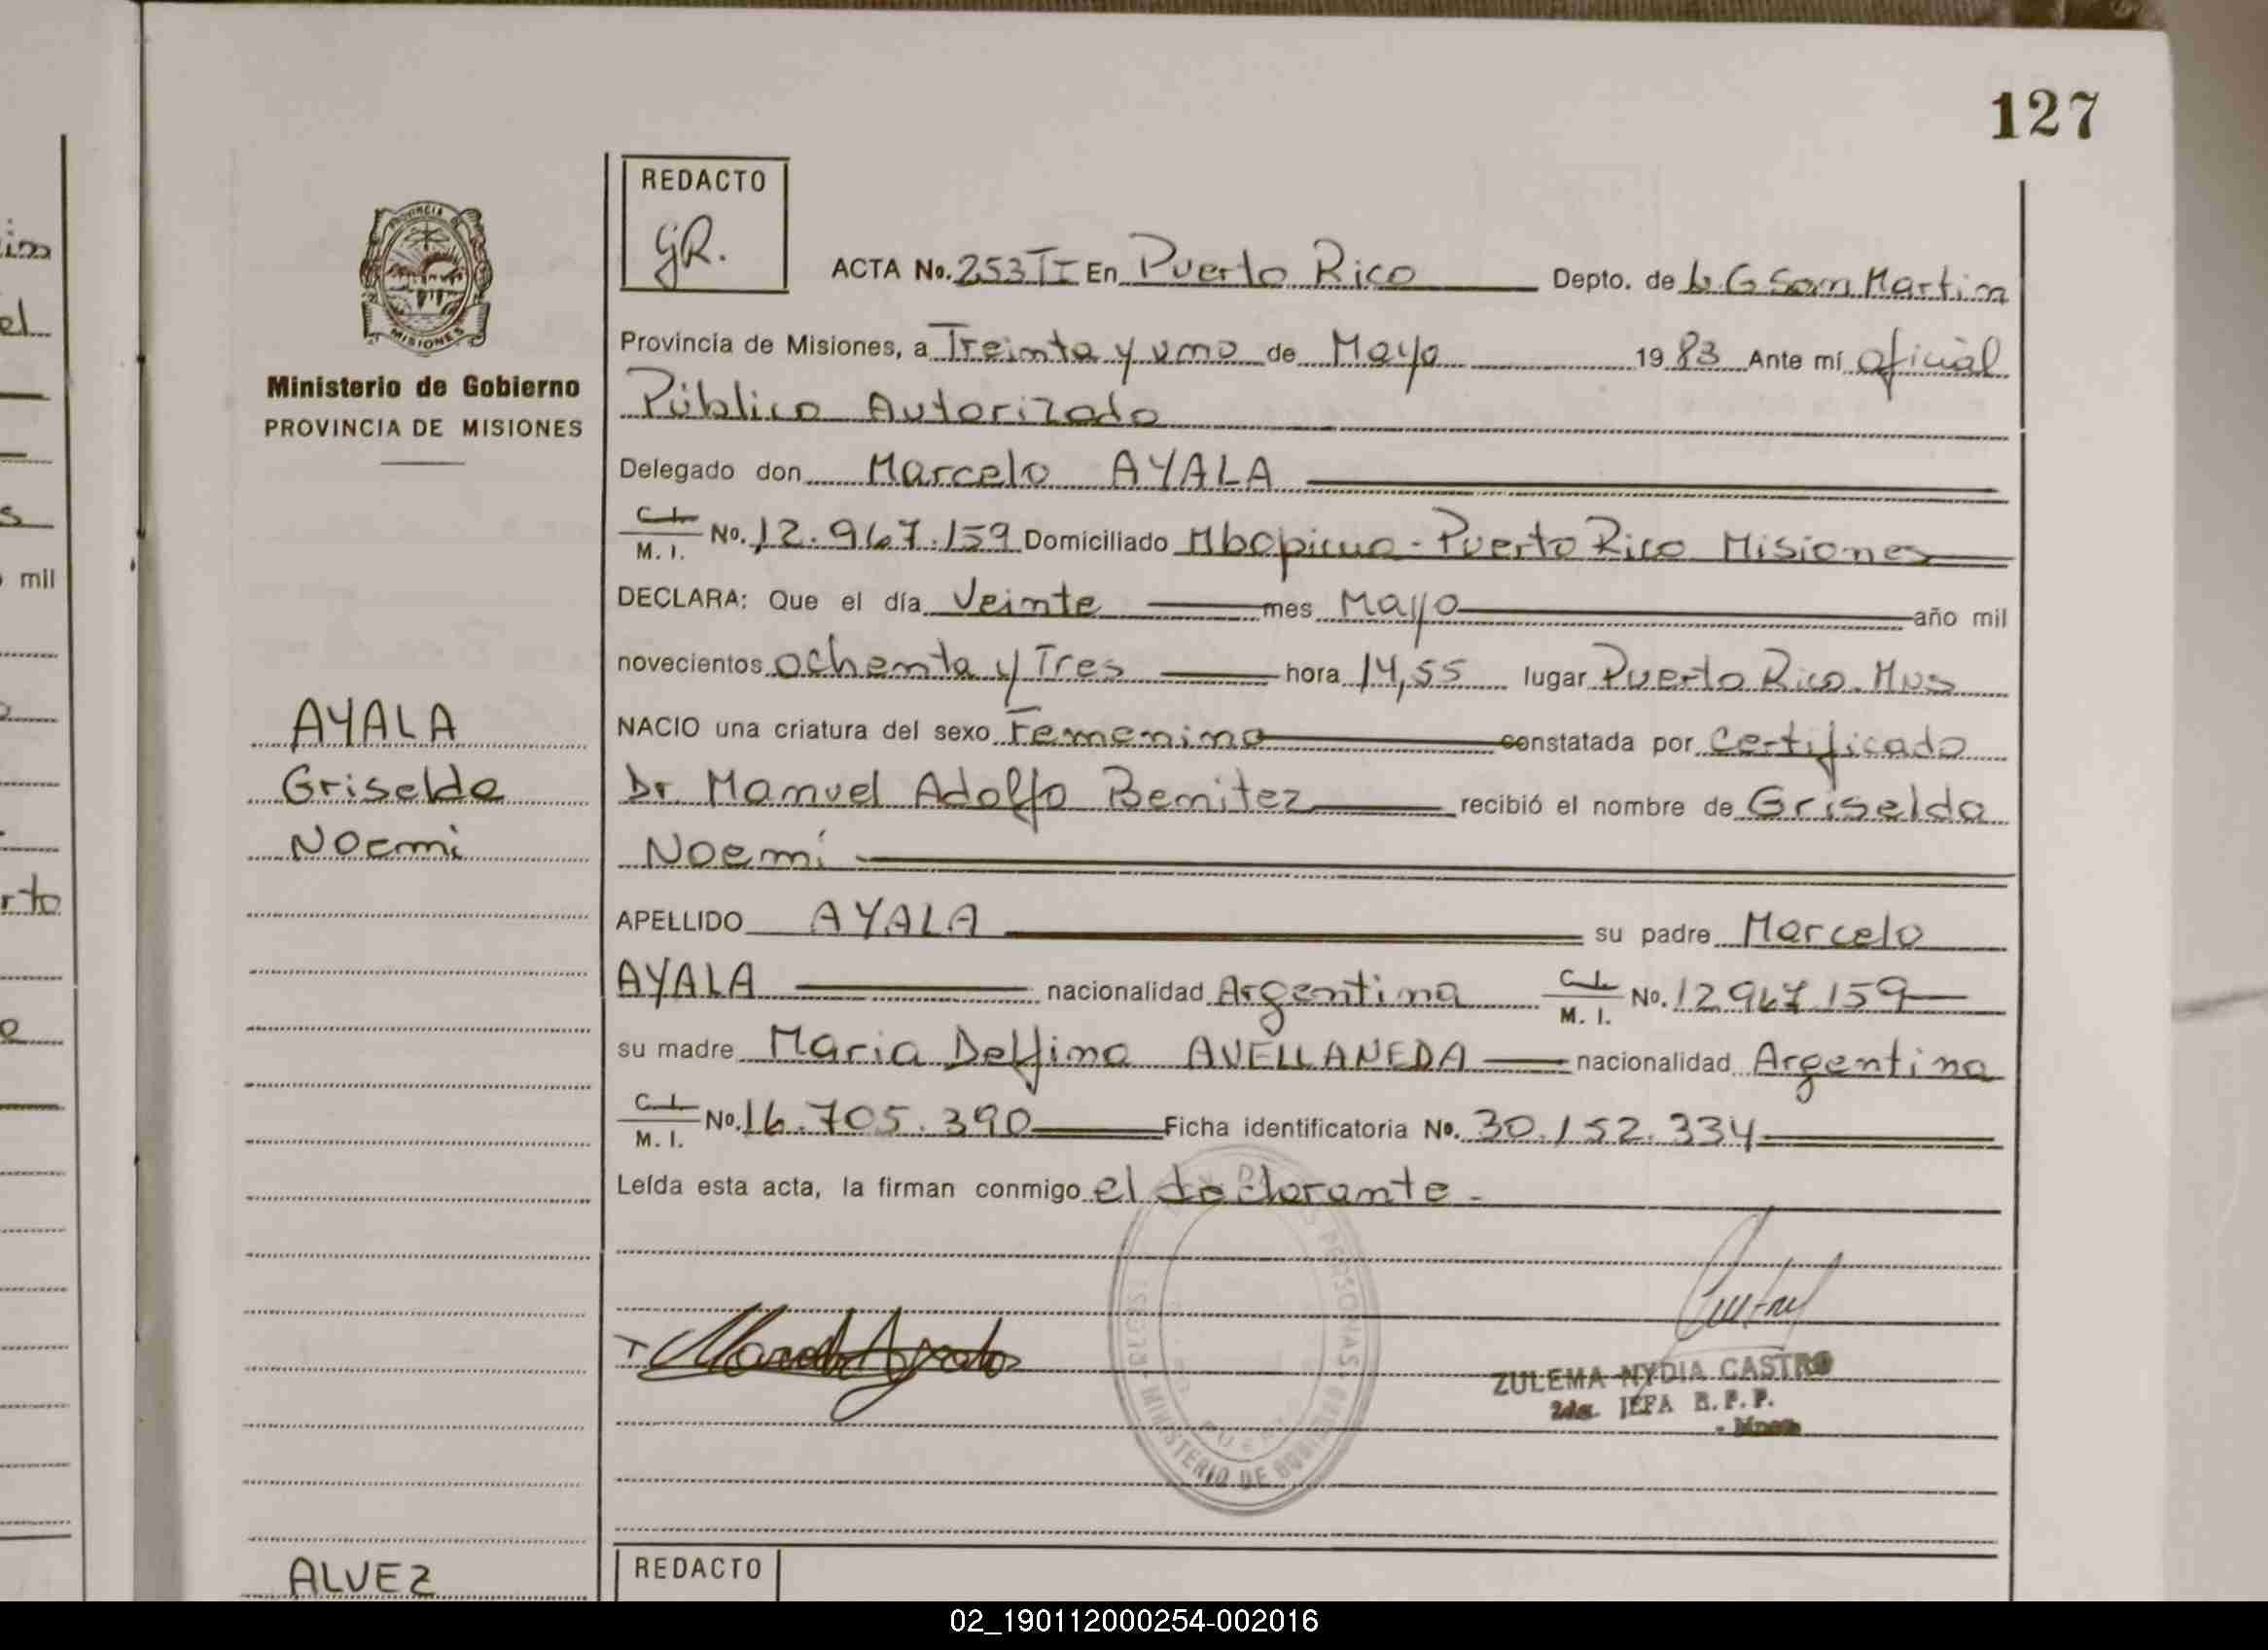 127
REDACTO
GR.
ACTA No. 253 II En Puerto Rico Depto. de L. G San Martin
Provincia de Misiones, a Treinta y uno de Mayo 1983 Ante mí oficial
Público Autorizado
Delegado don Marcelo AYALA
C. I. M. I. No. 12.967.159 Domiciliado Mbopicua - Puerto Rico Misiones
DECLARA: Que el día Veinte mes Mayo año mil
novecientos ochenta y Tres hora 14,55 lugar Puerto Rico. Mns
NACIO una criatura del sexo Femenino constatada por Certificado
Dr Manuel Adolfo Benitez recibió el nombre de Griselda
Noemí
APELLIDO AYALA su padre Marcelo
AYALA nacionalidad Argentina C. I. M. I. No. 12 967 159
su madre Maria Delfina AVELLANEDA nacionalidad Argentina
C. I. M. I. No. 16.705.390 Ficha identificatoria No. 30.152.334
Leída esta acta, la firman conmigo el declarante.
Ministerio de Gobierno
PROVINCIA DE MISIONES
PROVINCIA
MISIONES
AYALA
Griselda
Noemi
Marcelo Ayala
PERSONAS
MINISTERIO DE
ZULEMA NYDIA CASTRO
2da. JEFA R.P.P.
ALVEZ
REDACTO
el
s
mil
rto
e
02_190112000254-002016